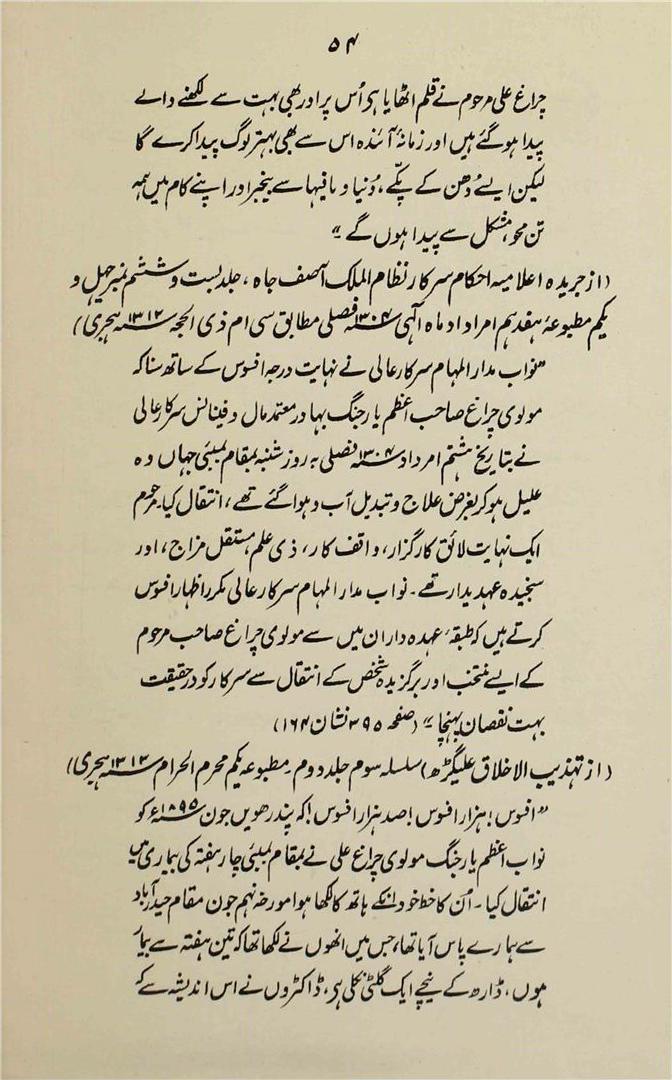 ۵۴
چراغ علی مرحوم نے قلم اٹھایا ہی اُس پر اور بھی بہت سے لکھنے والے
پیدا ہوگئے ہیں اور زمانۂ آئندہ اس سے بھی بہتر لوگ پیدا کرے گا
لیکن ایسے دُھن کے پکّے، دُنیا و مافیہا سے بیخبر اور اپنے کام میں ہمہ
تن محو، مشکل سے پیدا ہوں گے ۔"
(از جریدہ اعلامیہ احکام سرکار نظام الملک آصف جاہ، جلد بست و ششم نمبر چہل و
یکم مطبوعۂ ہفدہم امرداد ماہ الٰہی ۱۳۰۴؁ فصلی مطابق سی ام ذی الحجہ ۱۳۱۲؁ ہجری)
"نواب مدار المہام سرکار عالی نے نہایت درجہ افسوس کے ساتھ سنا کہ
مولوی چراغ صاحب اعظم یار جنگ بہادر معتمد مال و فینانس سرکار عالی
نے بتاریخ ہشتم امرداد ۱۳۰۴؁ فصلی بروز شنبہ بمقام بمبئی جہاں وہ
علیل ہوکر بغرض علاج و تبدیل آب و ہوا گئے تھے، انتقال کیا۔ مرحوم
ایک نہایت لائق کارگزار، واقف کار، ذی علم، مستقل مزاج، اور
سنجیدہ عہدیدار تھے۔ نواب مدار المہام سرکار عالی مکرر اظہار افسوس
کرتے ہیں کہ طبقۂ عہدہ داران میں سے مولوی چراغ صاحب مرحوم
کے ایسے منتخب اور برگزیدہ شخص کے انتقال سے سرکار کو درحقیقت
بہت نقصان پہنچا ۔" (صفحہ ۳۹۵ نشان ۱۶۴)
(از تہذیب الاخلاق علیگڑھ) سلسلہ سوم جلد دوم۔ مطبوعہ یکم محرم الحرام ۱۳۱۳؁ ہجری)
"افسوس! ہزار افسوس! صد ہزار افسوس! کہ پندرھویں جون ۱۸۹۵؁ء کو
نواب اعظم یار جنگ مولوی چراغ علی نے بمقام بمبئی چار ہفتہ کی بیماری میں
انتقال کیا۔ اُن کا خط خود انکے ہاتھ کا لکھا ہوا مورخہ نہم جون مقام حیدرآباد
سے ہمارے پاس آیا تھا، جس میں انھوں نے لکھا تھا کہ تین ہفتہ سے بیمار
ہوں، ڈارھ کے نیچے ایک گلٹی نکلی ہی، ڈاکٹروں نے اس اندیشہ سے کہ